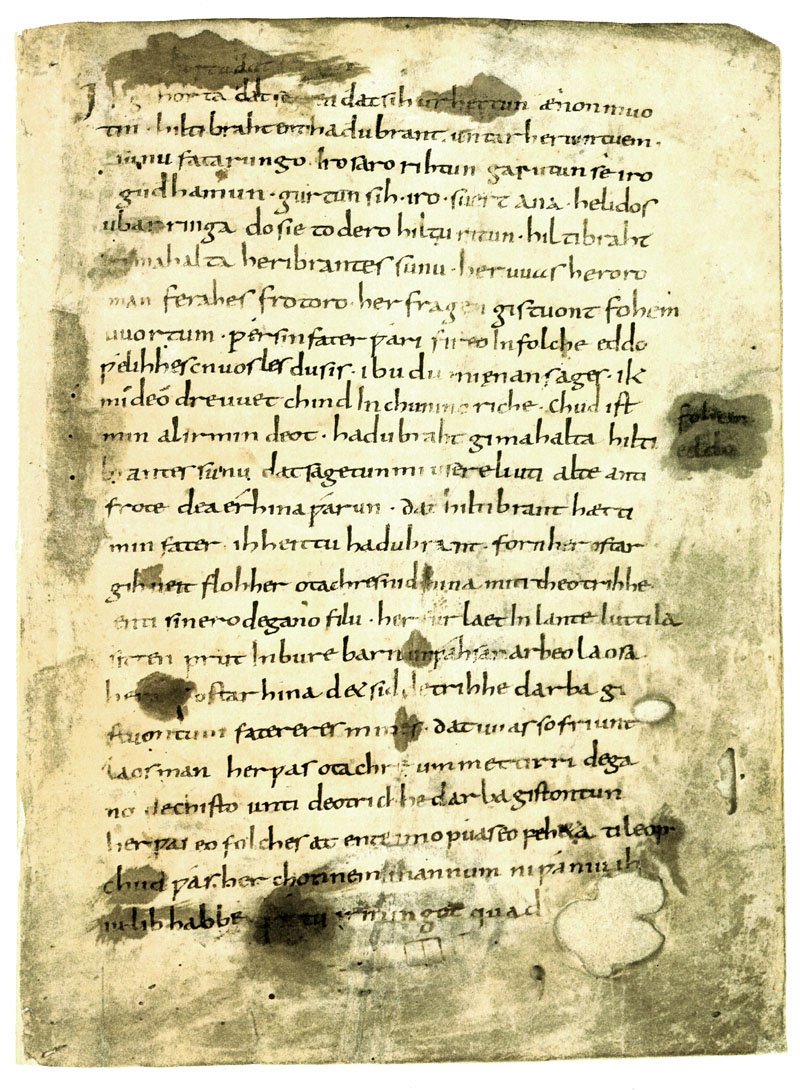 Ik gihorta dat seggen dat sih urhettun ænon muo
tin · hiltibraht enti hadubrant untar heriun tuem ·
sunu fatarungo · iro saro rihtun garutun se iro
gudhamun · gurtun sih · iro · suert ana · helidos
ubar ringa do sie to dero hiltu ritun · hiltibraht
gimahalta heribrantes sunu · her uuas heroro
man ferahes frotoro · her fragen gistuont fohem
uuortum · ƿer sin fater ƿari fireo In folche eddo
ƿelihhes cnuosles du sis · ibu du mi enan sages · ik
mi deo dre uuet chind In chunincriche · chud ist
min al irmin deot · hadubraht gimahalta hilti
brantes sunu dat sagetun mi usere liuti alte anti
frote dea érhina ƿarun · dat hiltibrant hætti
min fater · ih heittu hadubrant · forn her ostar
gihueit floh her otachres nid hina miti theotrihhe
enti sinero degano filu · her furlaet In lante luttila
sitten prut In bure barn unƿahsan arbeo laosa
ostar hina d& sid detrihhe darba gi
stuontum fatereres mines · dat uuas so friunt
laos man her ƿas otachre ummettirri dega
no dechisto unti deotrichhe darba gistontun
her ƿas eo folches at ente imo ƿuas eo feheta ti leop
chud ƿas her chonnem mannum ni ƿaniu ih
iu lib habbe irmingot quad